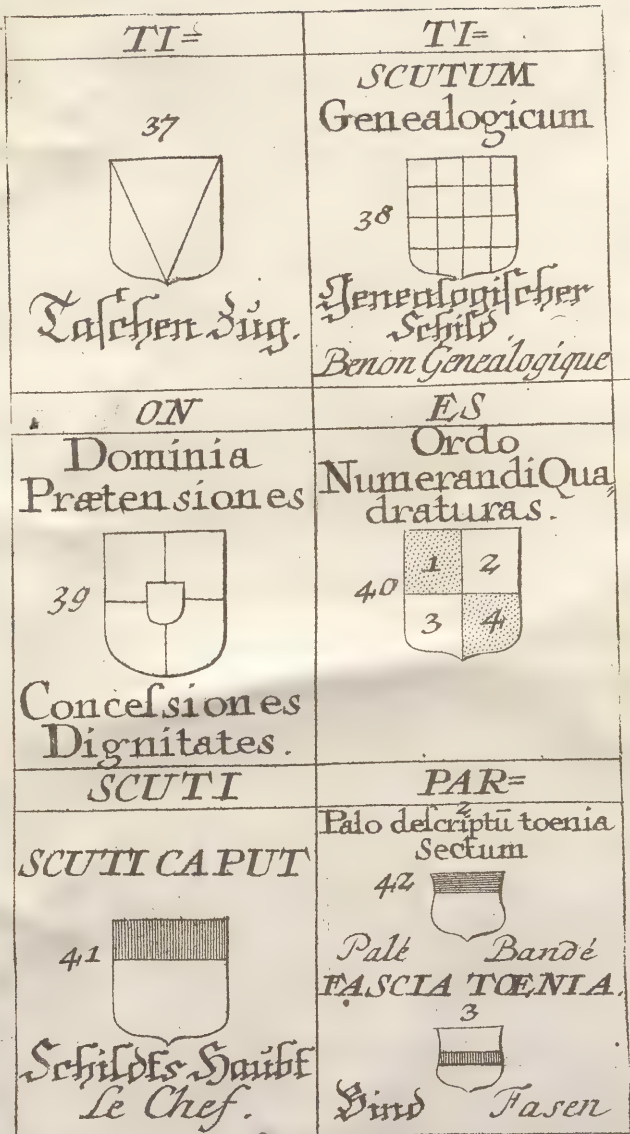 TI=
37
Taschen Zug.
TI=
SCUTUM
Genealogicum
38
Genealogischer
Schild.
Benon Genealogique
ON
Dominia
Prætensiones
39
Conceſsiones
Dignitates.
ES
Ordo
Numerandi Qua⸗
draturas.
40
1 2
3 4
SCUTI
SCUTI CAPUT
41
Schildts Haubt
Le Chef.
PAR=
2
Palo deſcriptū toenia
Sectum
42
Palé Bandé
FASCIA TŒNIA.
3
Bind Fasen